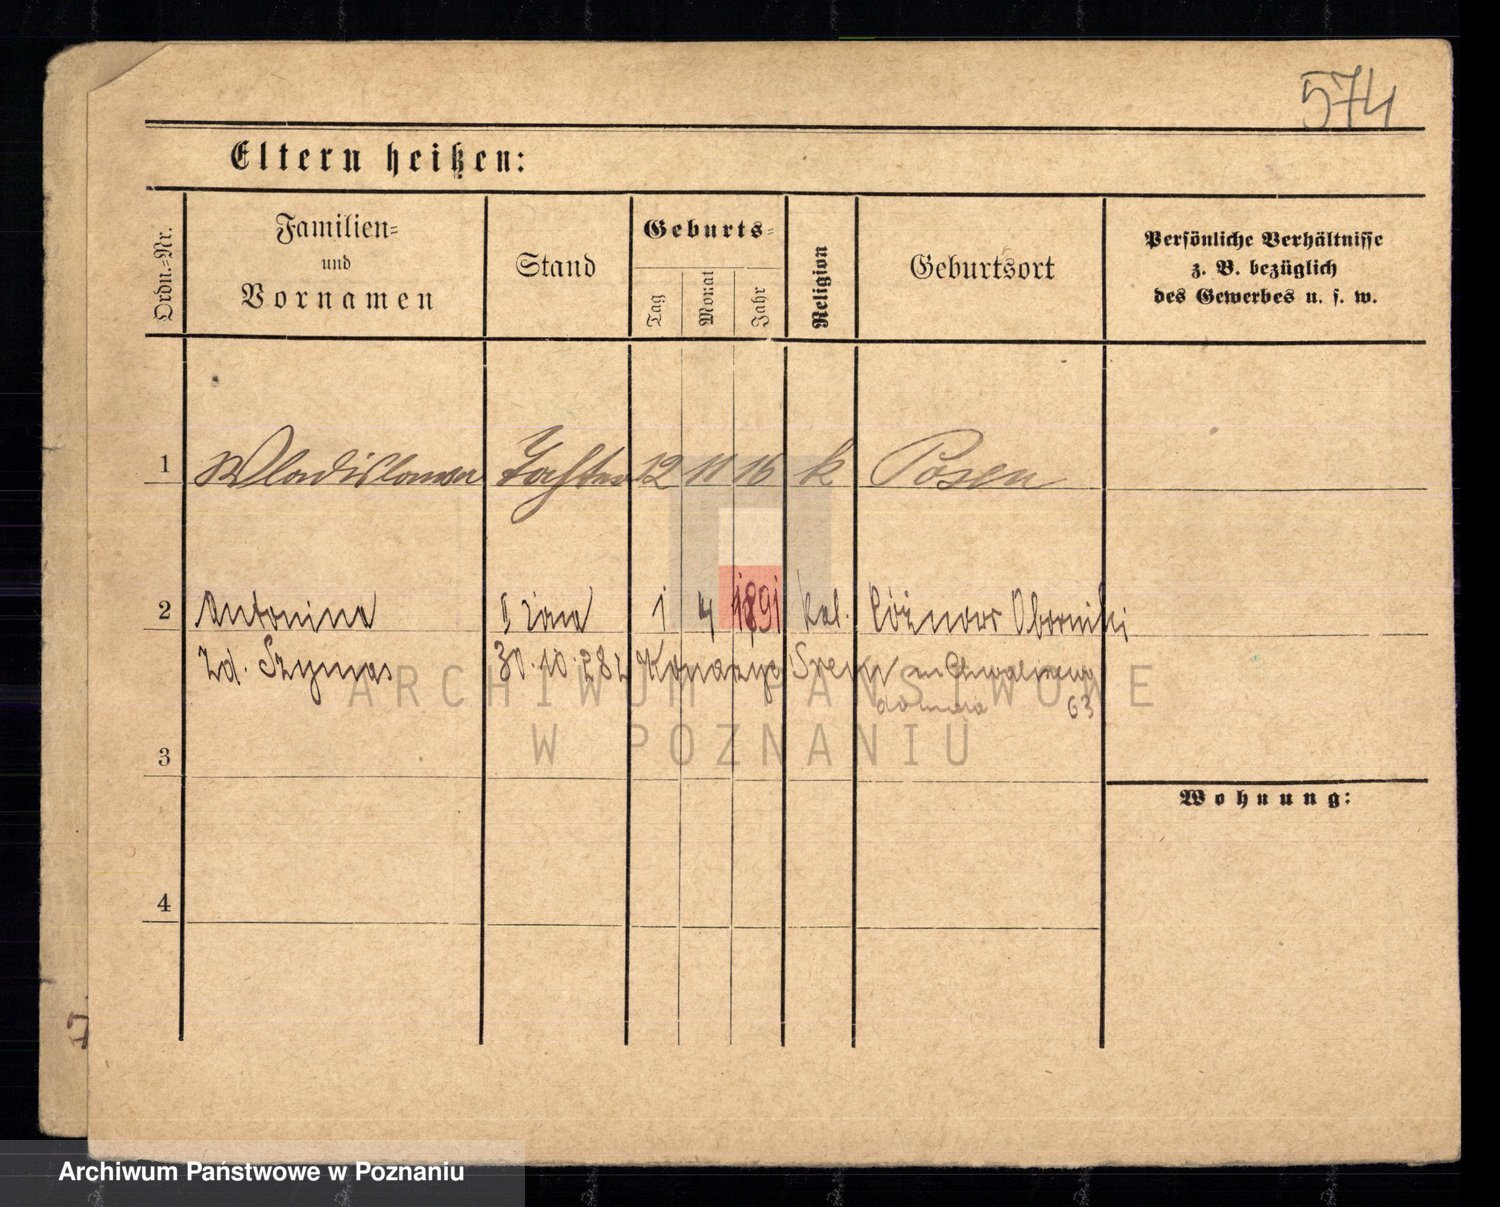 574
Eltern heißen:
Ordn.-Nr.
Familien-
und
Vornamen
Stand
Geburts-
Tag
Monat
Jahr
Religion
Geburtsort
Persönliche Verhältnisse
z. B. bezüglich
des Gewerbes u. s. w.
1 Wladislawa Tochter 12 11 16 k Posen
2 Antonina II żona 1 4 1891 kat. Oborniki
Zd. Szymas 30.10.
63
ARCHIWUM PAŃSTWOWE
W POZNANIU
3
Wohnung:
4
Archiwum Państwowe w Poznaniu